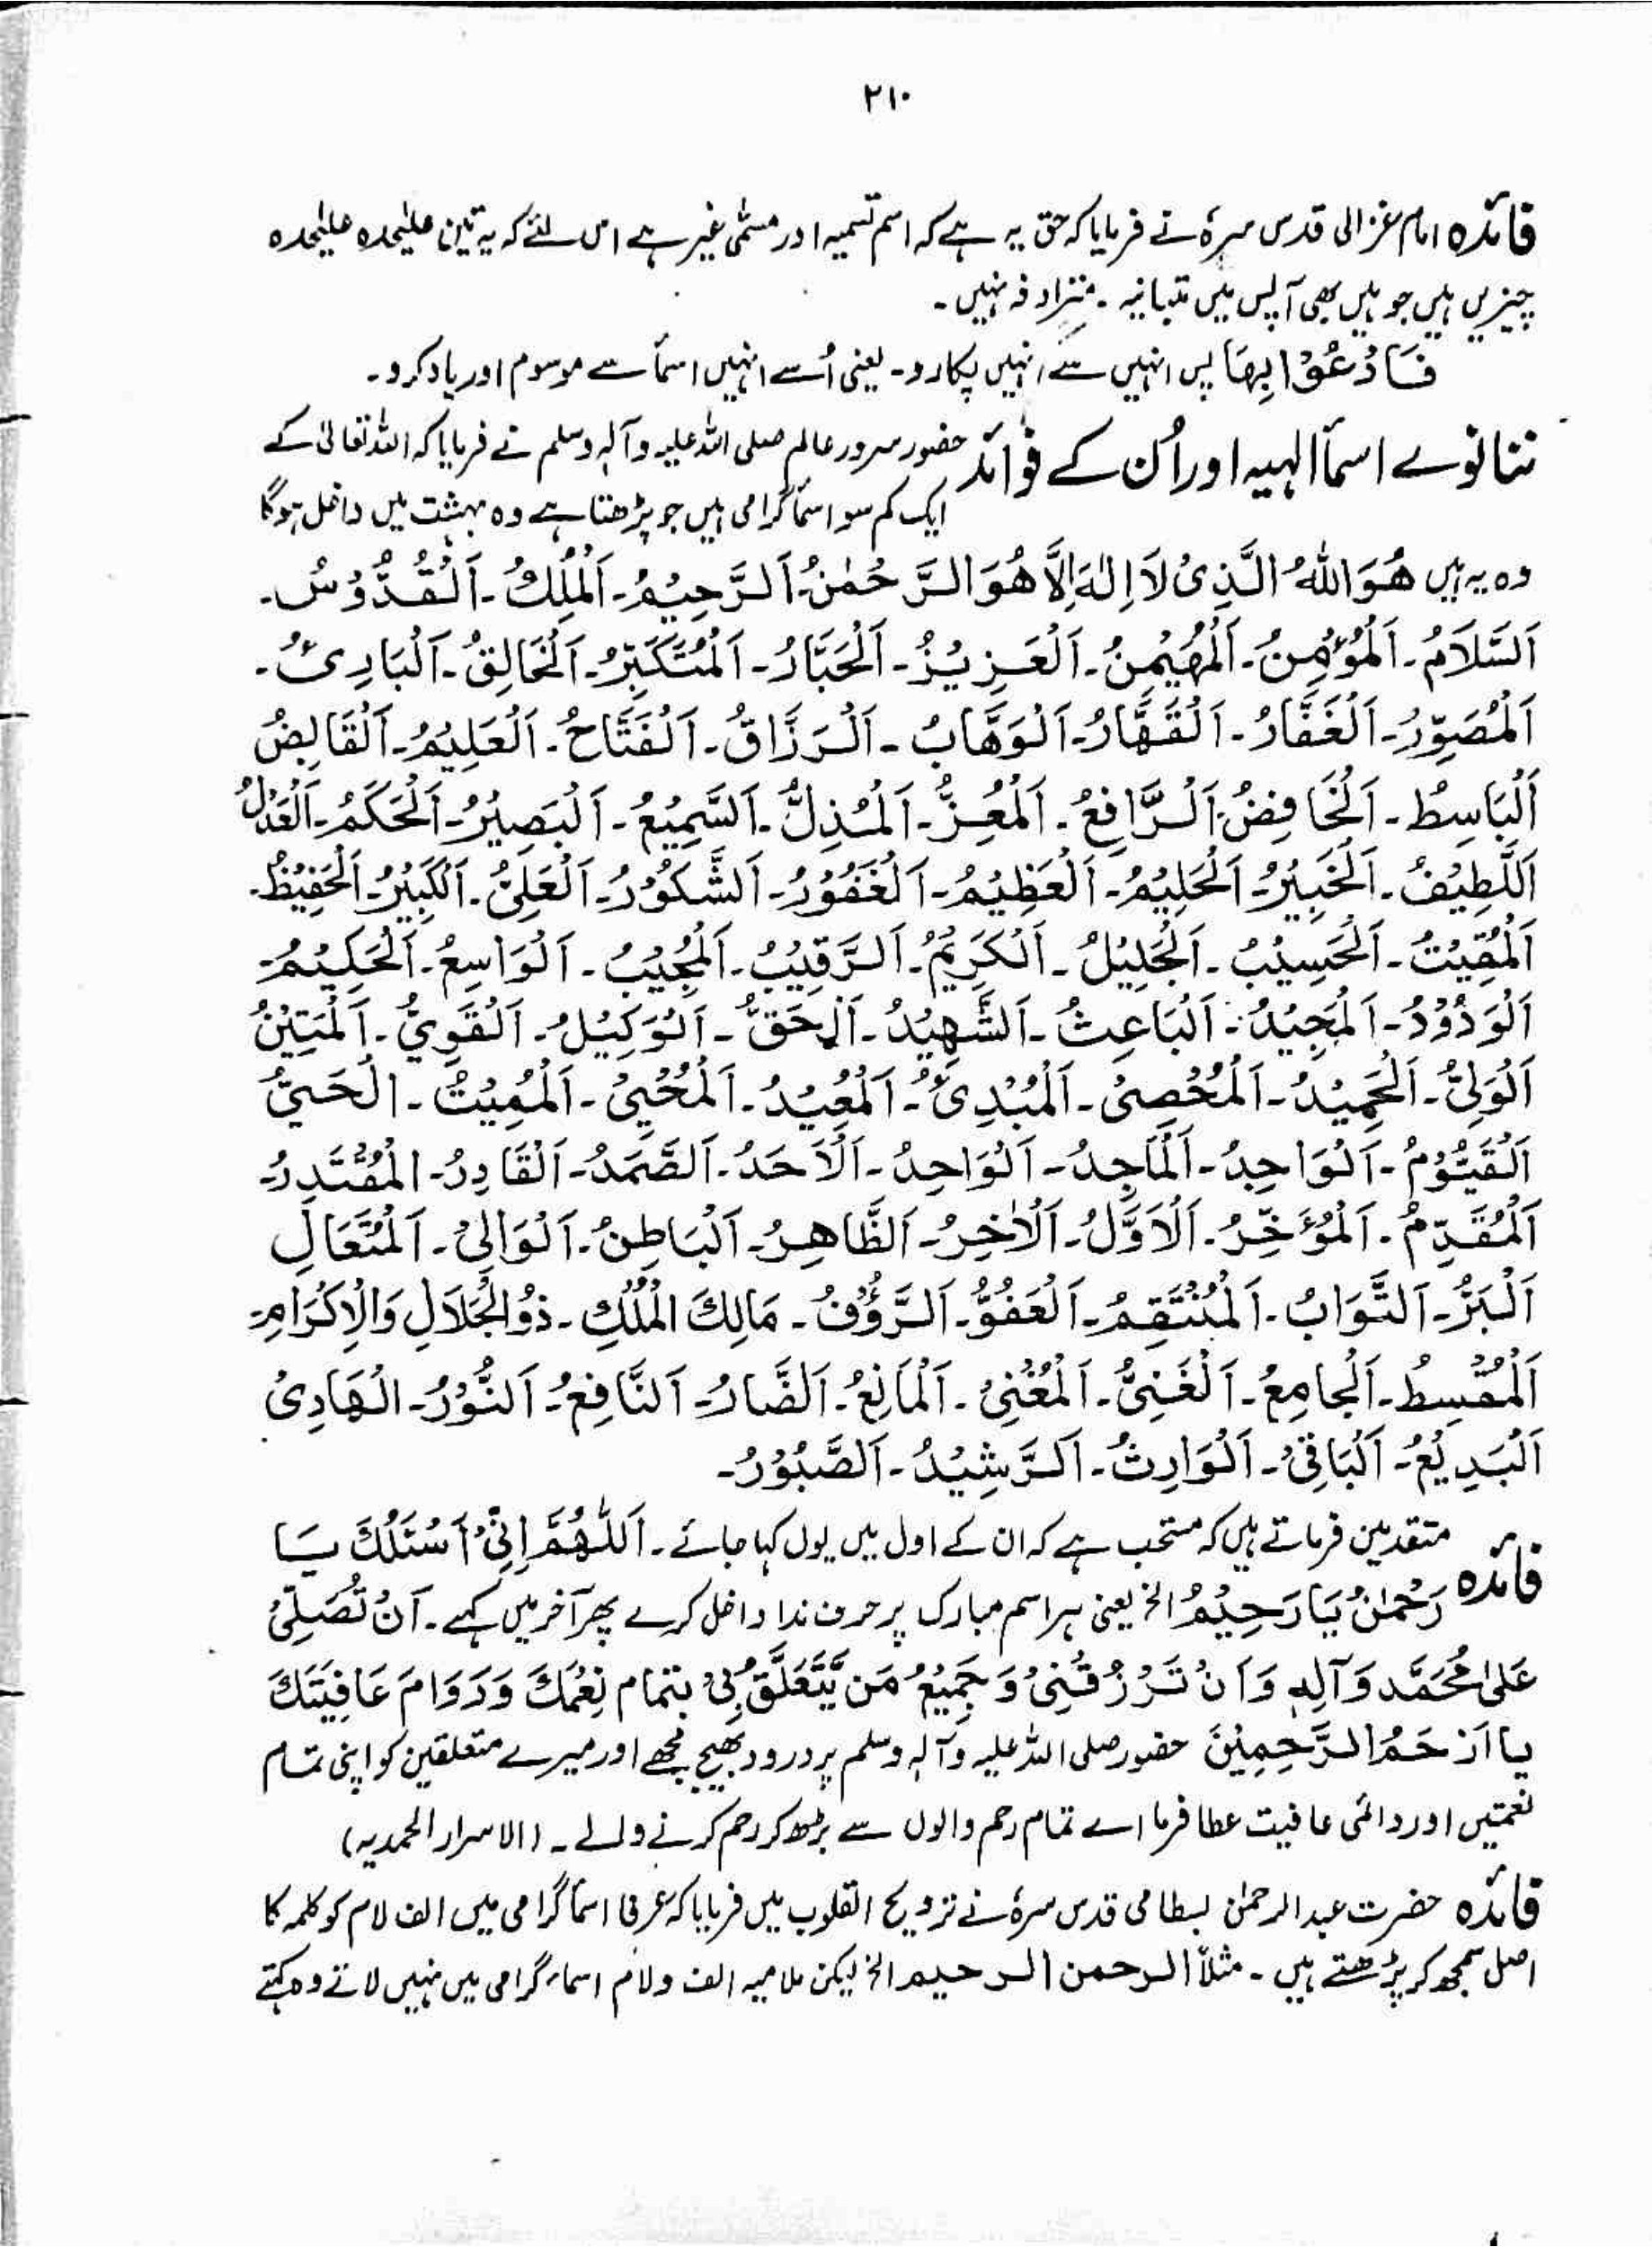 ۲۱۰
فائدہ امام غزالی قدس سرہٗ نے فرمایا کہ حق یہ ہے کہ اسم تسمیہ اور مسمّٰی غیر ہے اس لئے کہ یہ تین علیٰحدہ علیٰحدہ
چیزیں ہیں جو ہیں بھی آپس میں تبانیہ ۔ متزادفہ نہیں ۔
فَادْعُوْا بِهَا پس انہیں سے انہیں پکارو ۔ یعنی اُسے انہیں اسمأ سے موسوم اور یاد کرو ۔
ننانوے اسمأ الہیہ اور اُن کے فوائد حضور سرور عالم صلی اللہ علیہ وآلہٖ وسلم نے فرمایا کہ اللہ تعالیٰ کے
ایک کم سو اسمأ گرامی ہیں جو پڑھتا ہے وہ بہشت میں داخل ہوگا
وہ یہ ہیں هُوَ اللّٰهُ الَّذِیْ لَا اِلٰهَ اِلَّا هُوَ الرَّحْمٰنُ ۔ اَلرَّحِيْمُ ۔ اَلْمَلِكُ ۔ اَلْقُدُّوْسُ ۔
اَلسَّلَامُ ۔ اَلْمُؤْمِنُ ۔ اَلْمُهَيْمِنُ ۔ اَلْعَزِيْزُ ۔ اَلْجَبَّارُ ۔ اَلْمُتَكَبِّرُ ۔ اَلْخَالِقُ ۔ اَلْبَارِئُ ۔
اَلْمُصَوِّرُ ۔ اَلْغَفَّارُ ۔ اَلْقَهَّارُ ۔ اَلْوَهَّابُ ۔ اَلْرَزَّاقُ ۔ اَلْفَتَّاحُ ۔ اَلْعَلِيْمُ ۔ اَلْقَابِضُ
اَلْبَاسِطُ ۔ اَلْخَافِضُ ۔ اَلْرَّافِعُ ۔ اَلْمُعِزُّ ۔ اَلْمُذِلُّ ۔ اَلسَّمِيْعُ ۔ اَلْبَصِيْرُ ۔ اَلْحَكَمُ ۔ اَلْعَدْلُ
اَللَّطِيْفُ ۔ اَلْخَبِيْرُ ۔ اَلْحَلِيْمُ ۔ اَلْعَظِيْمُ ۔ اَلْغَفُوْرُ ۔ اَلشَّكُوْرُ ۔ اَلْعَلِىُّ ۔ اَلْكَبِيْرُ ۔ اَلْحَفِيْظُ ۔
اَلْمُقِيْتُ ۔ اَلْحَسِيْبُ ۔ اَلْجَلِيْلُ ۔ اَلْكَرِيْمُ ۔ اَلرَّقِيْبُ ۔ اَلْمُجِيْبُ ۔ اَلْوَاسِعُ ۔ اَلْحَكِيْمُ ۔
اَلْوَدُوْدُ ۔ اَلْمَجِيْدُ ۔ اَلْبَاعِثُ ۔ اَلشَّهِيْدُ ۔ اَلْحَقُّ ۔ اَلْوَكِيْلُ ۔ اَلْقَوِيُّ ۔ اَلْمَتِيْنُ
اَلْوَلِىُّ ۔ اَلْحَمِيْدُ ۔ اَلْمُحْصِىْ ۔ اَلْمُبْدِئُ ۔ اَلْمُعِيْدُ ۔ اَلْمُحْيِىْ ۔ اَلْمُمِيْتُ ۔ الْحَىُّ
اَلْقَيُّوْمُ ۔ اَلْوَاجِدُ ۔ اَلْمَاجِدُ ۔ اَلْوَاحِدُ ۔ اَلْاَحَدُ ۔ اَلصَّمَدُ ۔ اَلْقَادِرُ ۔ الْمُقْتَدِرُ ۔
اَلْمُقَدِّمُ ۔ اَلْمُؤَخِّرُ ۔ اَلْاَوَّلُ ۔ اَلْاٰخِرُ ۔ اَلظَّاهِرُ ۔ اَلْبَاطِنُ ۔ اَلْوَالِىْ ۔ اَلْمُتَعَالِ
اَلْبَرُّ ۔ اَلتَّوَابُ ۔ اَلْمُنْتَقِمُ ۔ اَلْعَفُوُّ ۔ اَلرَّؤُفُ ۔ مَالِكَ الْمُلْكِ ۔ ذُوالْجَلَالِ وَالْاِكْرَامِ ۔
اَلْمُقْسِطُ ۔ اَلْجامِعُ ۔ اَلْغَنِىُّ ۔ اَلْمُغْنِىْ ۔ اَلْمَانِعُ ۔ اَلضَّارُ ۔ اَلنَّافِعُ ۔ اَلنُّوْرُ ۔ الْهَادِىْ
اَلْبَدِيْعُ ۔ اَلْبَاقِىْ ۔ اَلْوَارِثُ ۔ اَلرَّشِيْدُ ۔ اَلصَّبُوْرُ ۔
فائدہ متقدمین فرماتے ہیں کہ مستحب ہے کہ ان کے اول میں یوں کہا جائے ۔ اَللّٰهُمَّ اِنِّىْ اَسْئَلُكَ يَا
رَحْمٰنُ يَا رَحِيْمُ الخ یعنی ہر اسم مبارک پر حرف ندا داخل کرے پھر آخر میں کہے ۔ اَنْ تُصَلِّىْ
عَلىٰ مُحَمَّد وَآلِهٖ وَاَنْ تَرْزُقْنِىْ وَجَمِيْعُ مَن يَّتَعَلَّقُ بِىْ بتمام نِعْمَكَ وَدَوَامَ عَافِيَتَكَ
يا اَرْحَمُ الرَّحِمِيْنَ حضور صلی اللہ علیہ وآلہٖ وسلم پر درود بھیج مجھے اور میرے متعلقین کو اپنی تمام
نعمتیں اور دائمی عافیت عطا فرما اے تمام رحم والوں سے بڑھ کر رحم کرنے والے ۔ (الاسرار المحمدیہ)
فائدہ حضرت عبد الرحمٰن بسطامی قدس سرہٗ نے ترویح القلوب میں فرمایا کہ عرفا اسمأ گرامی میں الف لام کو کلمہ کا
اصل سمجھ کر پڑھتے ہیں ۔ مثلاً الرحمن الرحیم الخ لیکن ملامیہ الف ولام اسماء گرامی میں نہیں لاتے وہ کہتے